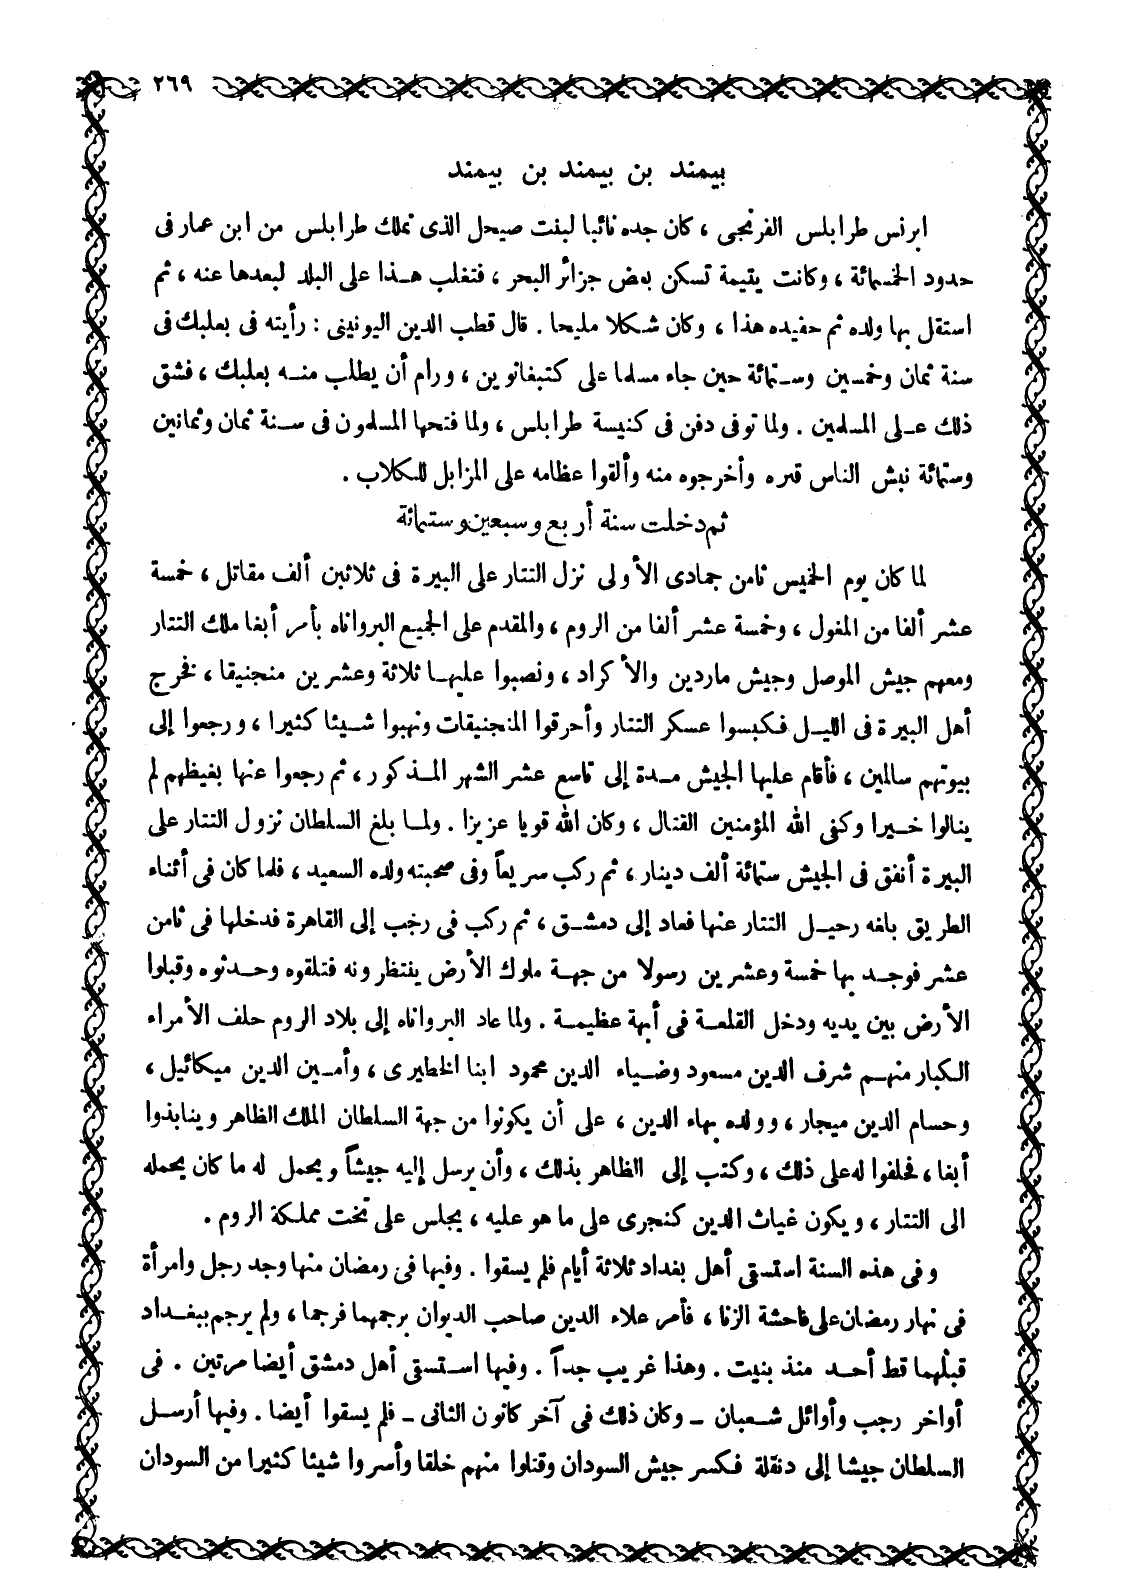 ٢٦٩
بيمند بن بيمند بن بيمند
ابرنس طرابلس الفرنجى ، كان جده نائبا لبنت صيحل الذى تملك طرابلس من ابن عمار فى
حدود الخمسمائة ، وكانت يتيمة تسكن بعض جزائر البحر ، فتغلب هذا على البلد لبعدها عنه ، ثم
استقل بها ولده ثم حفيده هذا ، وكان شكلا مليحا . قال قطب الدين اليونينى : رأيته فى بعلبك فى
سنة ثمان وخمسين وستمائة حين جاء مسلما على كتبغانوين ، ورام أن يطلب منه بعلبك ، فشق
ذلك على المسلمين . ولما توفى دفن فى كنيسة طرابلس ، ولما فتحها المسلمون فى سنة ثمان وثمانين
وستمائة نبش الناس قبره وأخرجوه منه وألقوا عظامه على المزابل للكلاب .
ثم دخلت سنة أربع وسبعين وستمائة
لما كان يوم الخميس ثامن جمادى الأولى نزل التتار على البيرة فى ثلاثين ألف مقاتل ، خمسة
عشر ألفا من المغول ، وخمسة عشر ألفا من الروم ، والمقدم على الجميع البرواناه بأمر أبغا ملك التتار
ومعهم جيش الموصل وجيش ماردين والأكراد ، ونصبوا عليها ثلاثة وعشرين منجنيقا ، فخرج
أهل البيرة فى الليل فكبسوا عسكر التتار وأحرقوا المنجنيقات ونهبوا شيئا كثيرا ، ورجعوا إلى
بيوتهم سالمين ، فأقام عليها الجيش مدة إلى تاسع عشر الشهر المذكور ، ثم رجعوا عنها بغيظهم لم
ينالوا خيرا وكفى الله المؤمنين القتال ، وكان الله قويا عزيزا . ولما بلغ السلطان نزول التتار على
البيرة أنفق فى الجيش ستمائة ألف دينار ، ثم ركب سريعاً وفى صحبته ولده السعيد ، فلما كان فى أثناء
الطريق بلغه رحيل التتار عنها فعاد إلى دمشق ، ثم ركب فى رجب إلى القاهرة فدخلها فى ثامن
عشر فوجد بها خمسة وعشرين رسولا من جهة ملوك الأرض ينتظرونه فتلقوه وحدثوه وقبلوا
الأرض بين يديه ودخل القلعة فى أبهة عظيمة . ولما عاد البرواناه إلى بلاد الروم حلف الأمراء
الكبار منهم شرف الدين مسعود وضياء الدين محمود ابنا الخطيرى ، وأمين الدين ميكائيل ،
وحسام الدين ميجار ، وولده بهاء الدين ، على أن يكونوا من جهة السلطان الملك الظاهر وينابذوا
أبغا ، فحلفوا له على ذلك ، وكتب إلى الظاهر بذلك ، وأن يرسل إليه جيشاً ويحمل له ما كان يحمله
الى التتار ، ويكون غياث الدين كنجرى على ما هو عليه ، يجلس على تخت مملكة الروم .
وفى هذه السنة استسقى أهل بغداد ثلاثة أيام فلم يسقوا . وفيها فى رمضان منها وجد رجل وامرأة
فى نهار رمضان على فاحشة الزنا ، فأمر علاء الدين صاحب الديوان برجمهما فرجما ، ولم يرجم ببغداد
قبلهما قط أحد منذ بنيت . وهذا غريب جداً . وفيها استسقى أهل دمشق أيضا مرتين . فى
أواخر رجب وأوائل شعبان - وكان ذلك فى آخر كانون الثانى - فلم يسقوا أيضا . وفيها أرسل
السلطان جيشا إلى دنقلة فكسر جيش السودان وقتلوا منهم خلقا وأسروا شيئا كثيرا من السودان